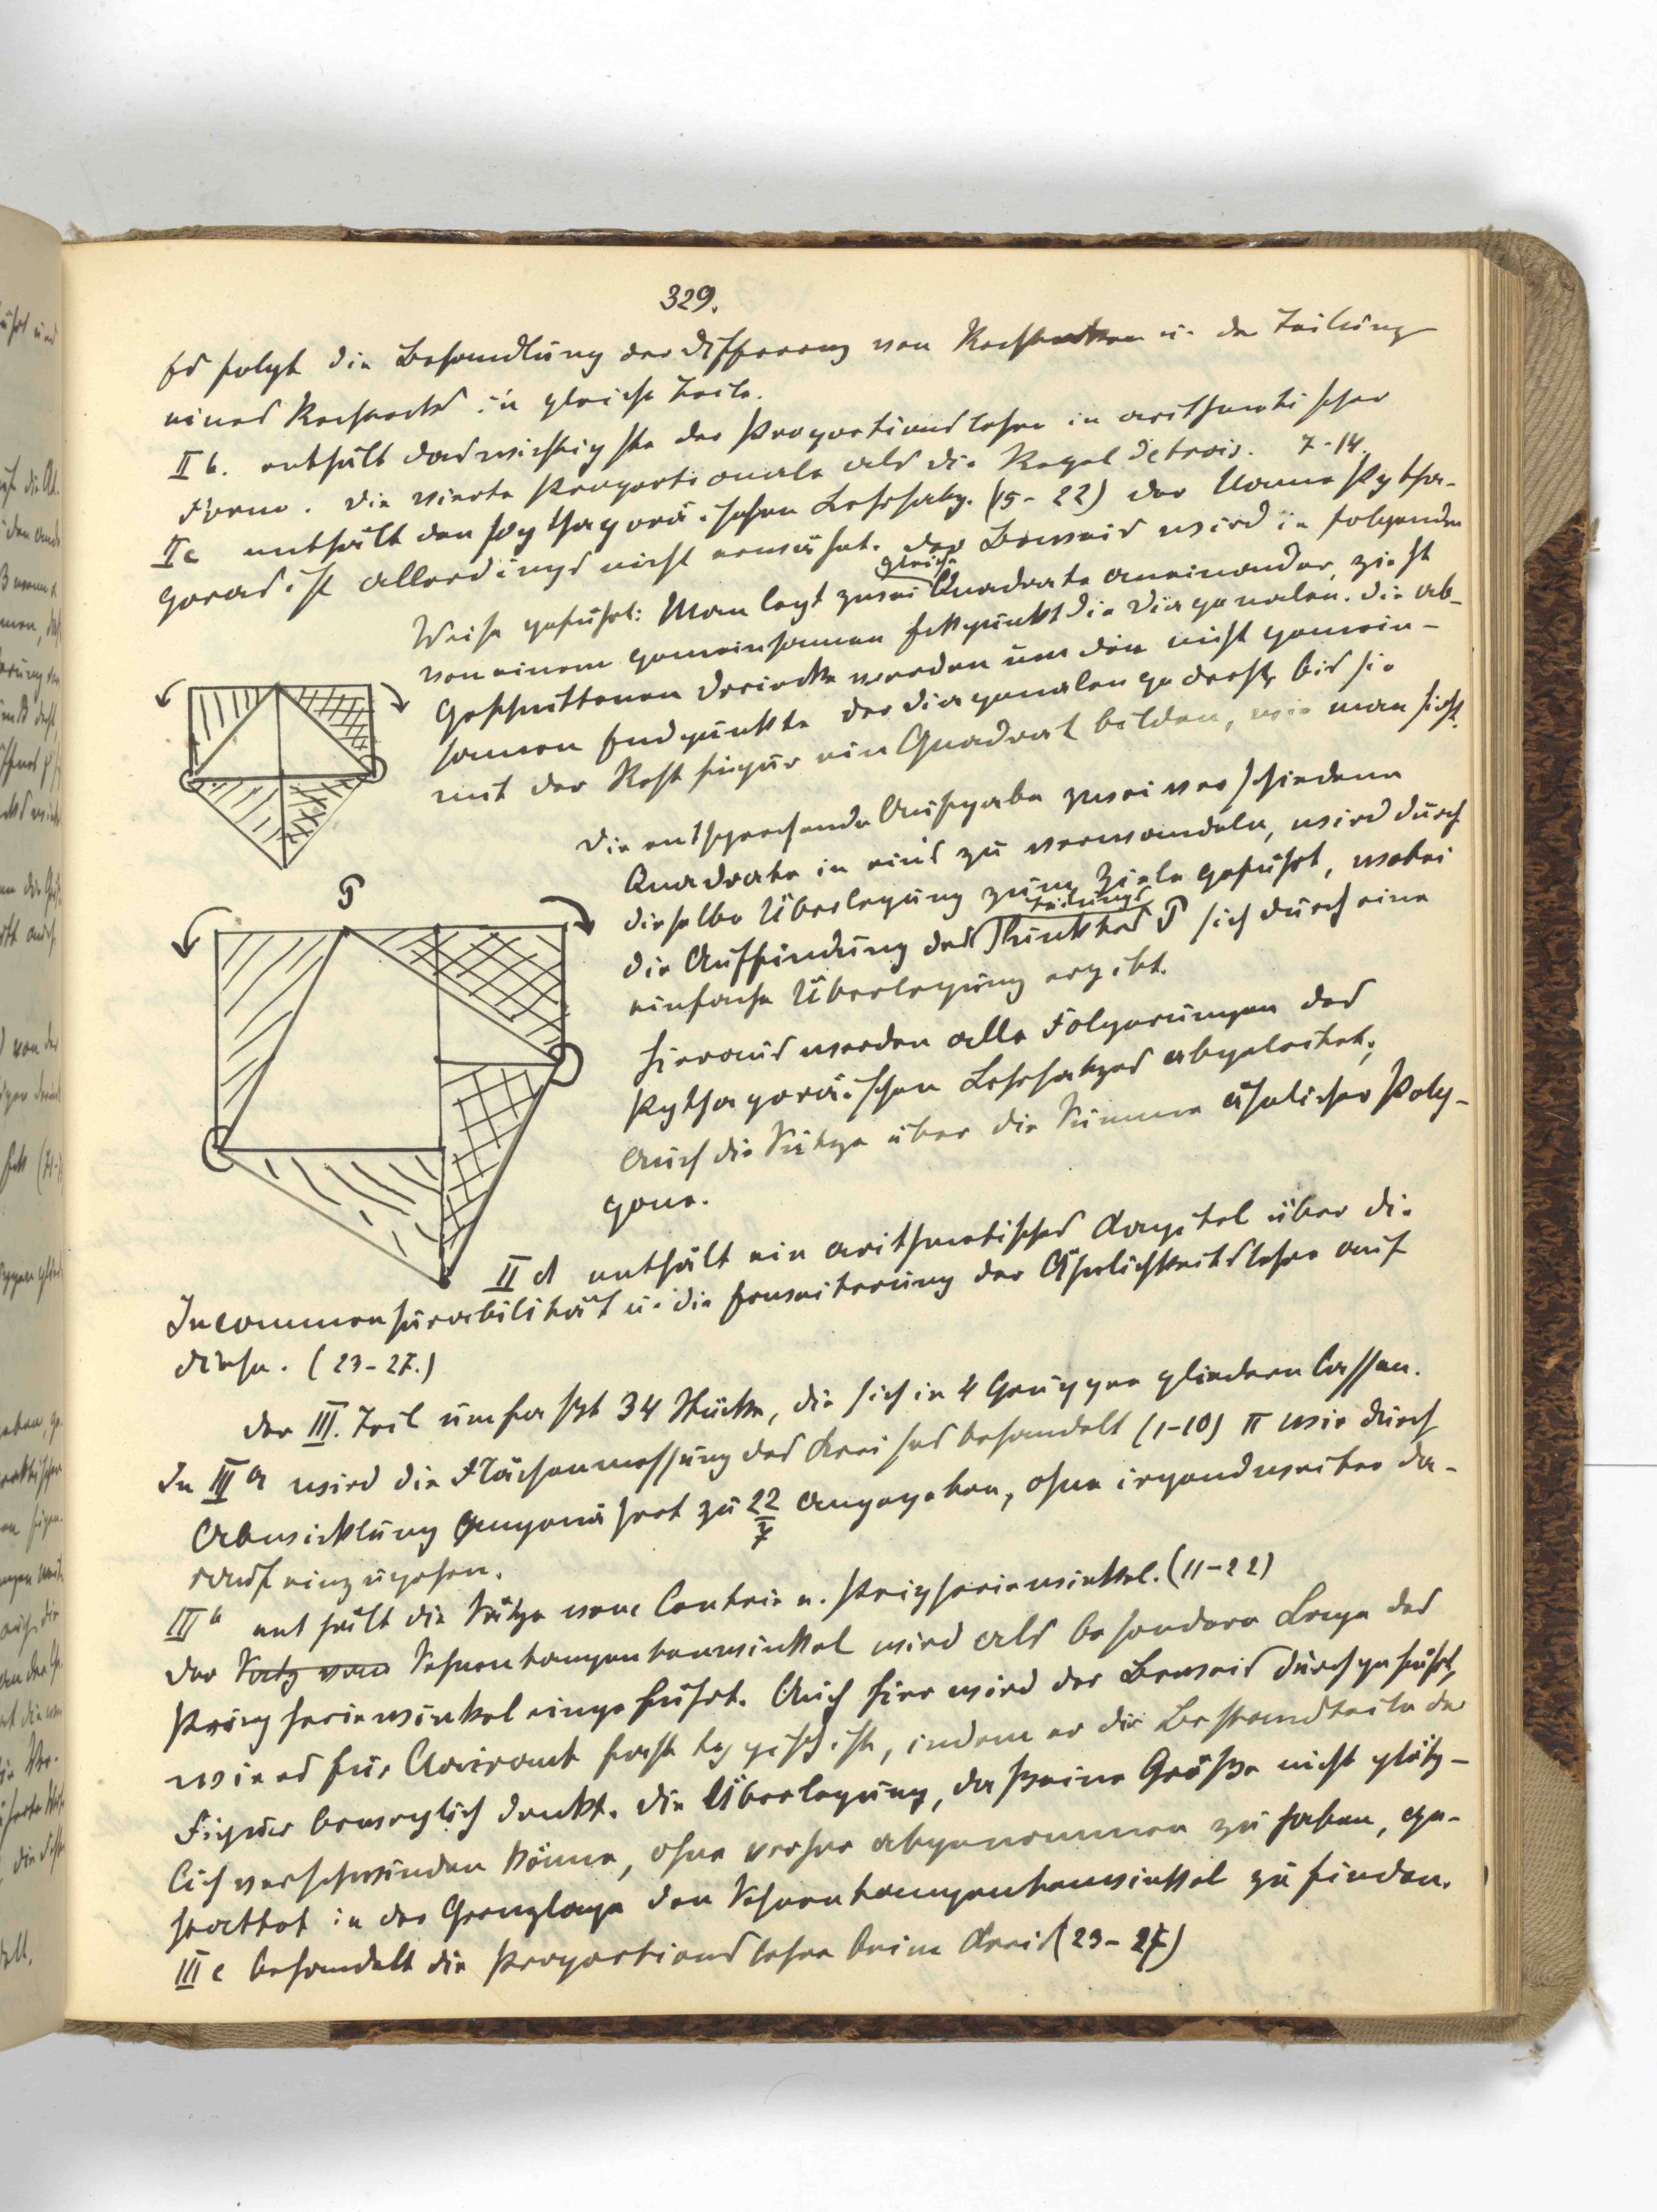 329.
Es folgt die Behandlung der Differenz von Rechtecken u. der Teilung
eines Rechtecks in gleiche Teile.
II b. enthält das wichtigste der Proportionslehre in arithmetischer
Form. Die vierte Proportionale als die Regel de trois. 7-14.
II c enthält den pythagoräischen Lehrsatz. (15-22) der Name Pytha-
goras ist allerdings nicht erwähnt. der Beweis wird in folgender
Weise geführt: Man legt zwei gleiche Quadrate aneinander, zieht
von einem gemeinsamen Eckpunkt die Diagonalen. Die ab-
geschnittenen Dreiecke werden um den nicht gemein-
samen Endpunkte der Diagonalen gedreht, bis sie
mit der Restfigur ein Quadrat bilden, wie man sieht.
Die entsprechende Aufgabe zwei verschiedene
Quadrate in eins zu verwandeln, wird durch
dieselbe Überlegung zum Ziele geführt, wobei
die Auffindung des Teilungspunktes P sich durch eine
einfache Überlegung ergibt.
P
Hieraus werden alle Folgerungen des
Pythagoräischen Lehrsatzes abgeleitet;
auch die Sätze über die Summe ähnlicher Poly-
gone.
II d enthält ein arithmetisches Kapitel über die
Incommensurabilität u. die Erweiterung der Ähnlichkeitslehre auf
diese. (23-27.)
Der III. Teil umfasst 34 Stücke, die sich in 4 Gruppen gliedern lassen.
In III a wird die Flächenmessung des Kreises behandelt (1-10) π wie durch
Abwicklung angenähert zu 22/7 angegeben, ohne irgendweiter da-
rauf einzugehen.
III b enthält die Sätze vom Centrie u. Peripheriewinkel. (11-22)
Der Satz vom Sehnentangentenwinkel wird als besondere Lage des
Peripheriewinkel eingeführt. Auch hier wird der Beweis durchgeführt,
wie es für Clairaut fast typisch ist, indem er die Bestandteile der
Figur beweglich denkt. Die Überlegung, dass eine Größe nicht plötz-
lich verschwinden könne, ohne vorher abgenommen zu haben, ge-
stattet in der Grenzlage den Sehnentangentenwinkel zu finden.
III c behandelt die Proportionslehre beim Kreis (23-27)